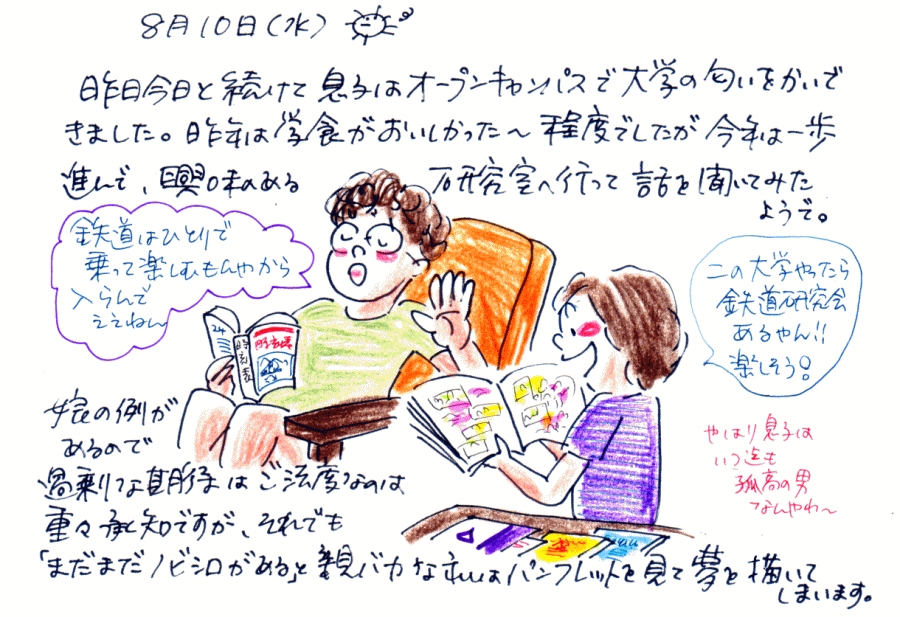 8月10日(水)
昨日今日と続けて息子はオープンキャンパスで大学の匂いをかいで
きました。昨年は学食がおいしかった〜程度でしたが今年は一歩
進んで、興味のある 研究室へ行って話を聞いてみた
ようで。
鉄道はひとりで
乗って楽しむもんやから
入らんで
ええねん
この大学やったら
鉄道研究会
あるやん!!
楽しそう!
時刻表
の例が
あるので
過剰な期待はご法度なのは
重々承知ですが、それでも
「まだまだノビシロがある」と親バカな私はパンフレットを見て夢を描いて
しまいます。
やはり息子は
いつ迄も
孤高の男
なんやわ〜